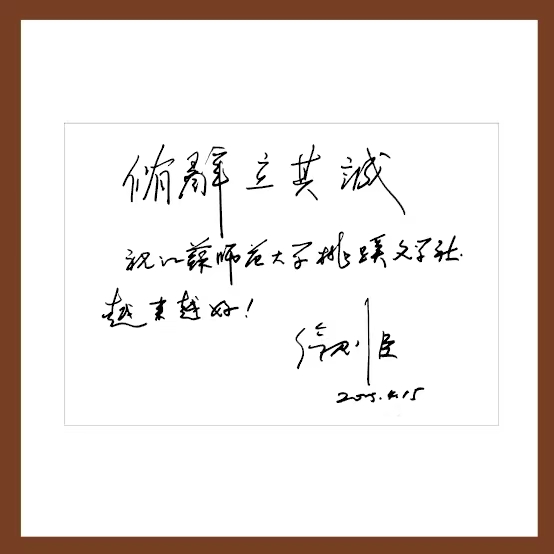 脩辭立其誠
祝江蘇师范大学桃蹊文学社
越来越好！
徐则臣
2015.4.15